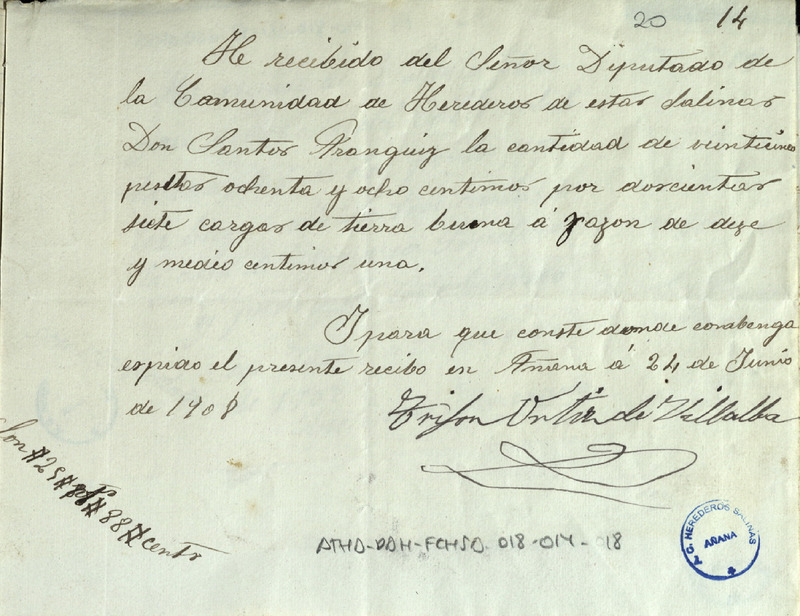 20 14
He recibido del Señor Diputado de
la Comunidad de Herederos de estas Salinas
Don Santos Aranguiz la cantidad de veinticinco
pesetas ochenta y ocho centimos por doscientas
siete cargas de tierra buena á razon de doze
y medio centimos una.
I para que conste donde conbenga
espido el presente recibo en Añana á 24 de Junio
de 1908
Ortiz de Villalba
Son #25# pts #88# cents
ATHA-DAH-FCHSA-018-014-18
G. HEREDEROS SALINAS
AÑANA